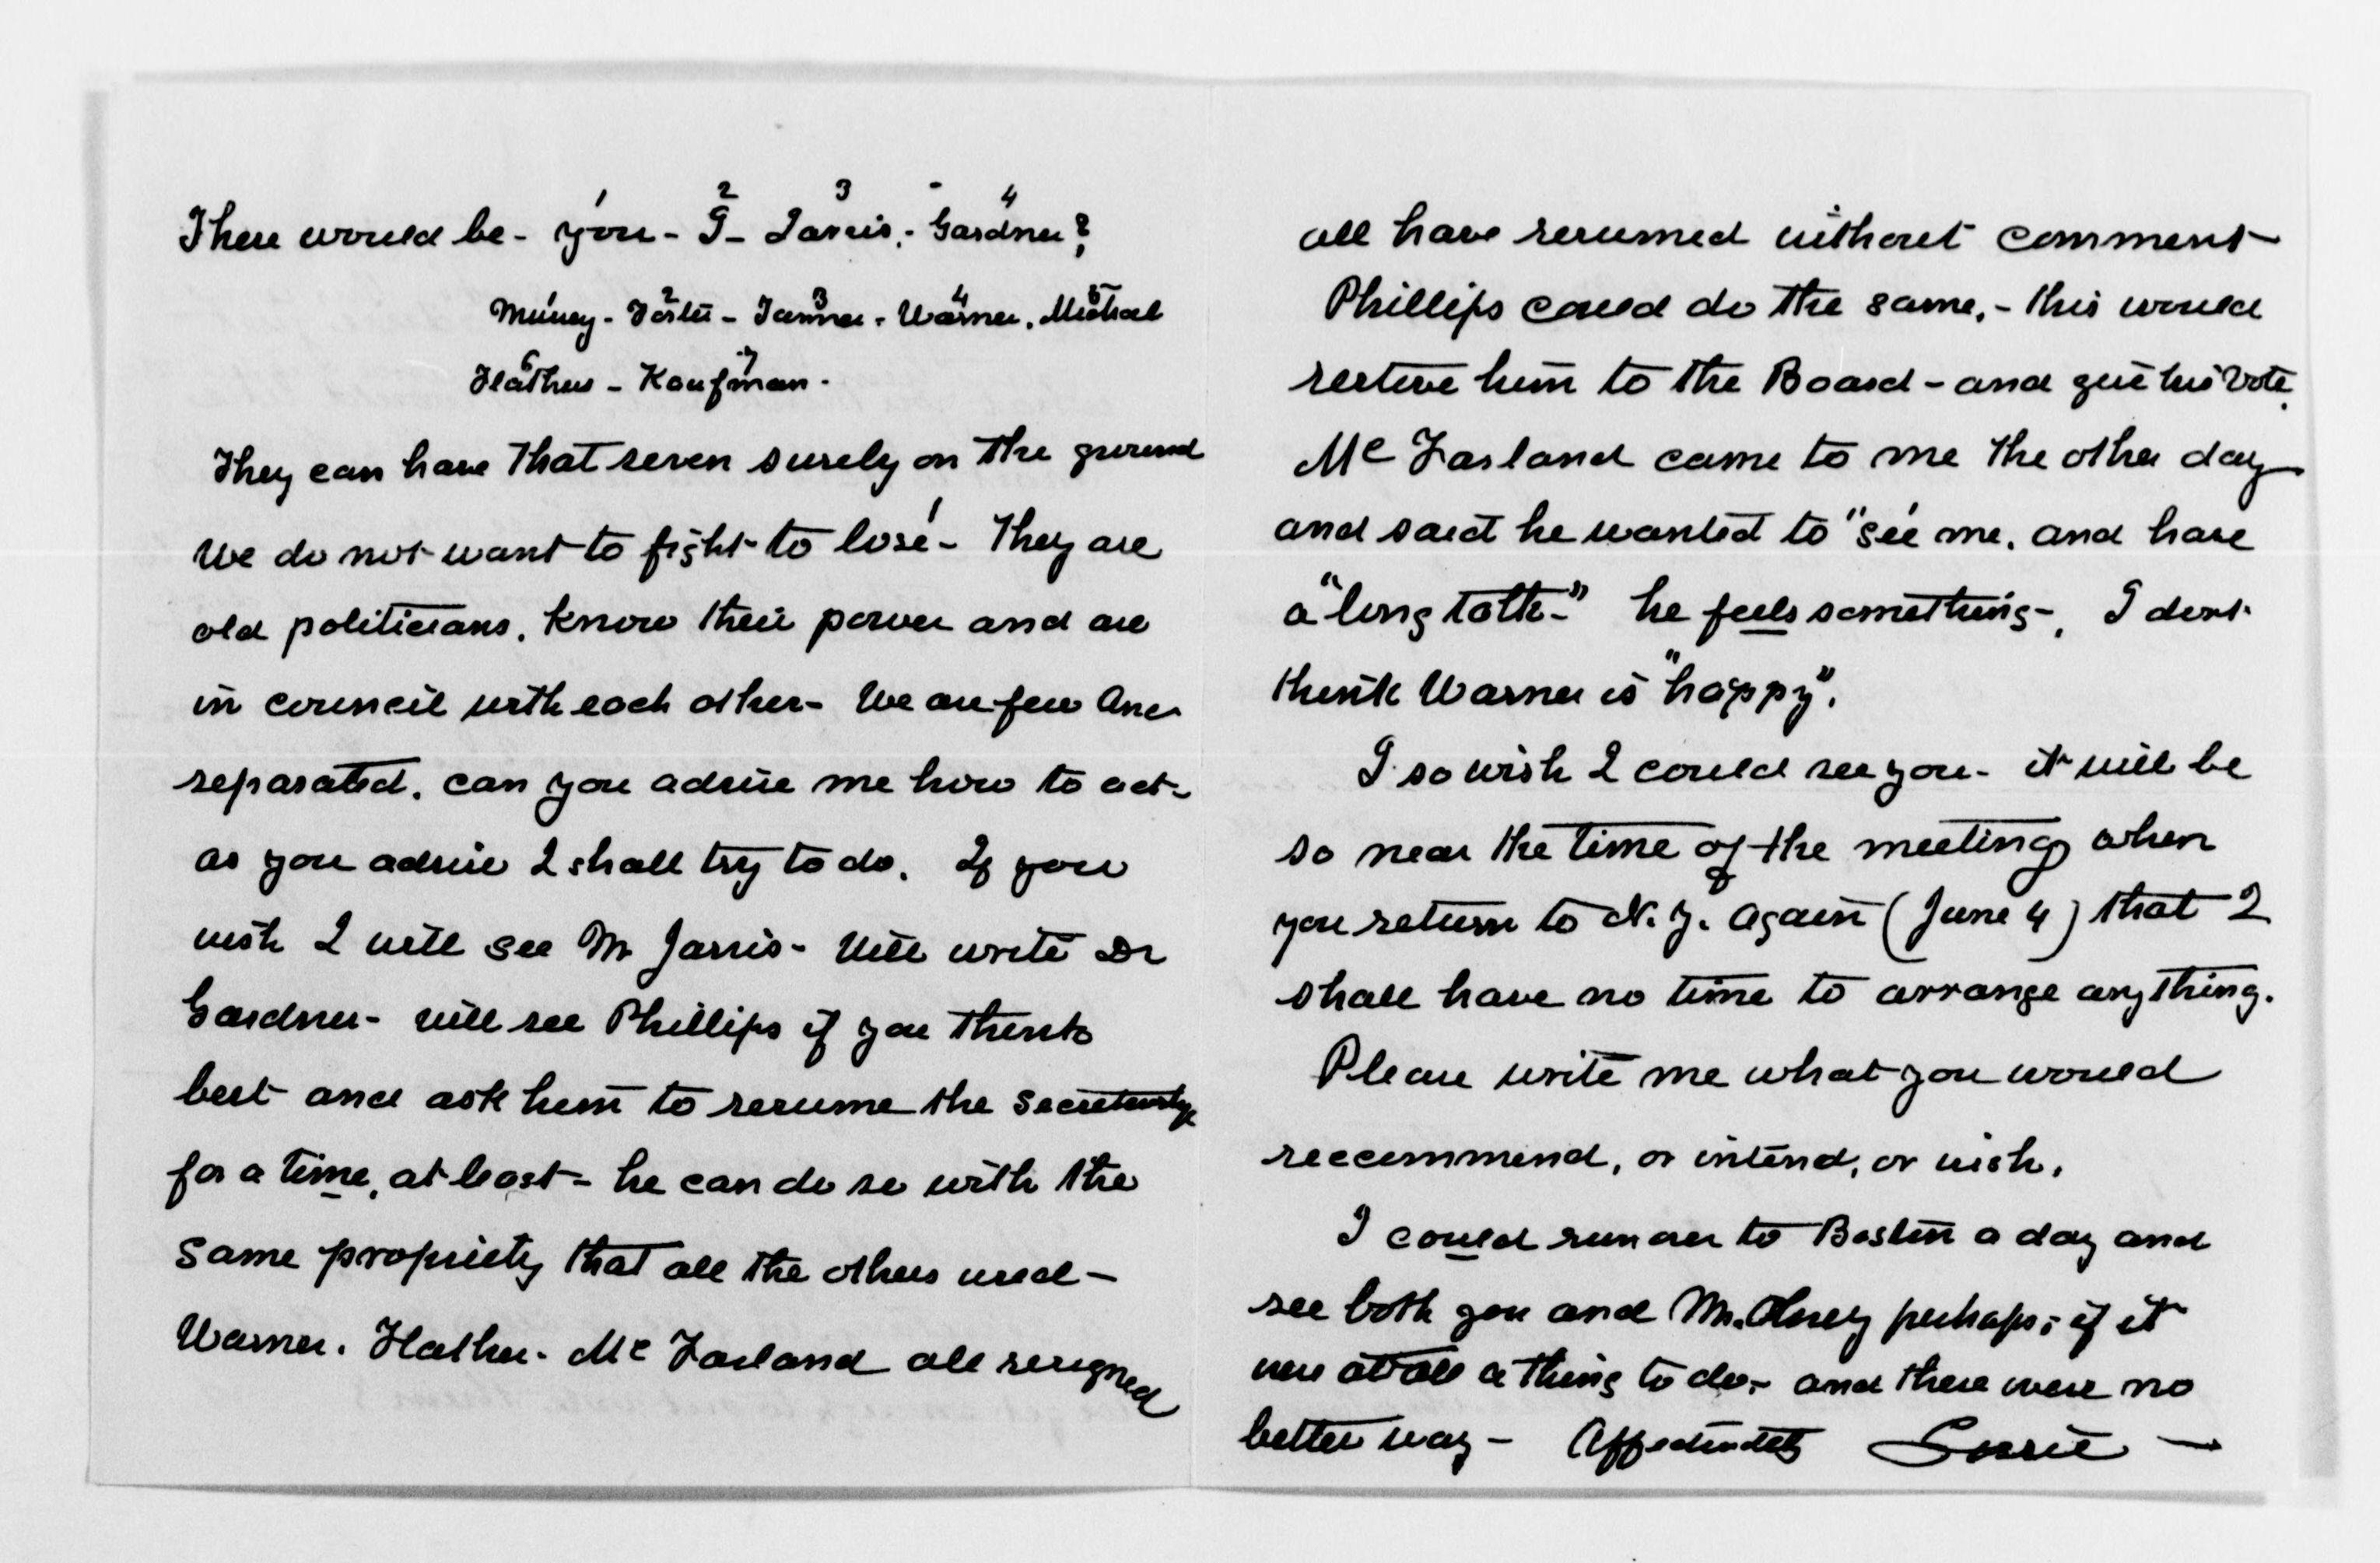 1 2 3 - 4
There would be - you - I - Jarvis, - Gardner?
1 2 3 4 5
Munsey - Foster - Tanner - Warner, Michael
6 7
Flather - Kaufman.
They can have that seven surely on the ground
We do not want to fight to lose! - They are
old politicians, know their power and are
in council with each other - We are few and
separated. can you advise me how to act -
as you advise I shall try to do. If you
wish I will see Mr Jarvis - Will write Dr
Gardner - will see Phillips if you think
best and ask him to resume the Secretaryship
for a time, at least - he can do so with the
same propriety that all the others used -
Warner. Flather - McFarland all resigned
all have resumed without comment -
Phillips could do the same, - this would
restore him to the Board - and give his vote.
McFarland came to me the other day
and said he wanted to "see me, and have
a "long talk-" he feels something -, I dont
think Warner is "happy".
I so wish I could see you - it will be
so near the time of the meeting when
you return to N.Y. again (June 4) that I
shall have no time to arrange anything.
Please write me what you would
reccommend, or intend, or wish,
I could run over to Boston a day and
see both you and Mr. Olney perhaps; if it
were at all a thing to do, - and there were no
better way - Affectindtly Sussie -